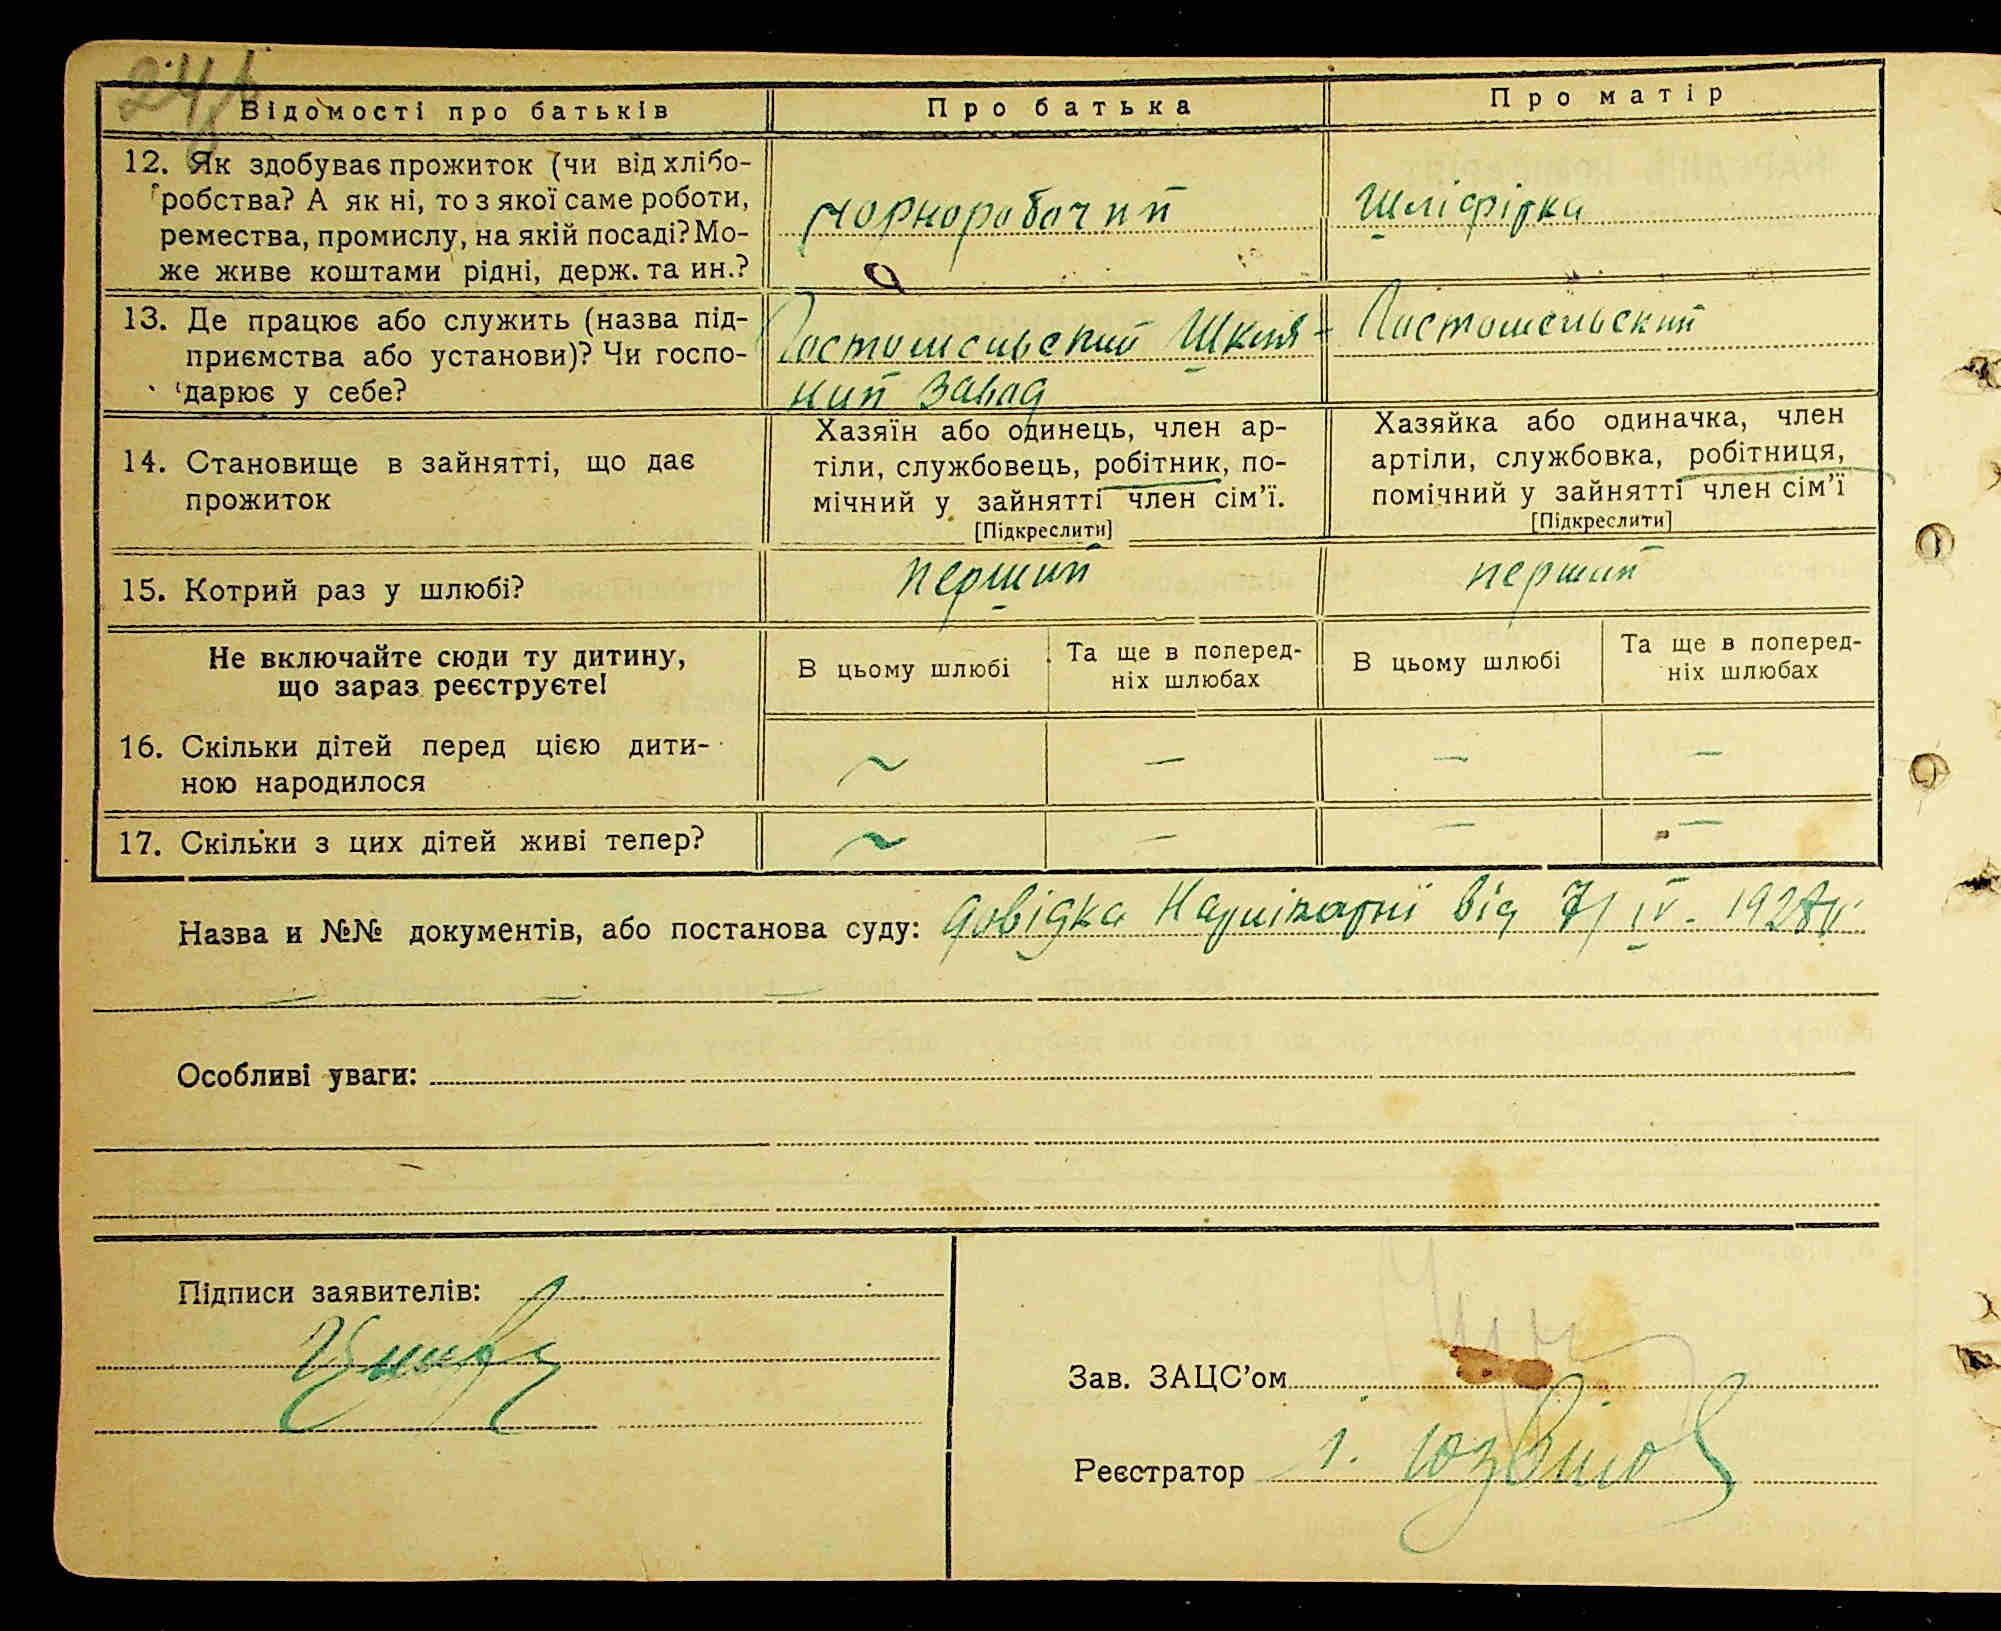 Відомості про батьків
Про батька
Про матір
12. Як здобуває прожиток (чи від хлібо-
робства? А як ні, то з якої саме роботи,
ремества, промислу, на якій посаді? Мо-
же живе коштами рідні, держ. та ин.?
Чорноробочий
Шліфірка
13. Де працює або служить (назва під-
приємства або установи)? Чи госпо-
дарює у себе?
Костошельский Шкля-
ний Завод
Костошельский
14. Становище в зайнятті, що дає
прожиток
Хазяїн або одинець, член ар-
тіли, службовець, робітник, по-
мічний у зайнятті член сім’ї.
[Підкреслити]
Хазяйка або одиначка, член
артіли, службовка, робітниця,
помічний у зайнятті член сім’ї
[Підкреслити]
15. Котрий раз у шлюбі?
перший
перший
Не включайте сюди ту дитину,
що зараз реєструєте!
В цьому шлюбі
Та ще в поперед-
ніх шлюбах
В цьому шлюбі
Та ще в поперед-
ніх шлюбах
16. Скільки дітей перед цією дити-
ною народилося
~ — — —
17. Скільки з цих дітей живі тепер?
~ — — —
Назва и №№ документів, або постанова суду: довідка від 7/IV - 1928р
Особливі уваги:
Підписи заявителів:
Зав. ЗАЦС’ом
Реєстратор